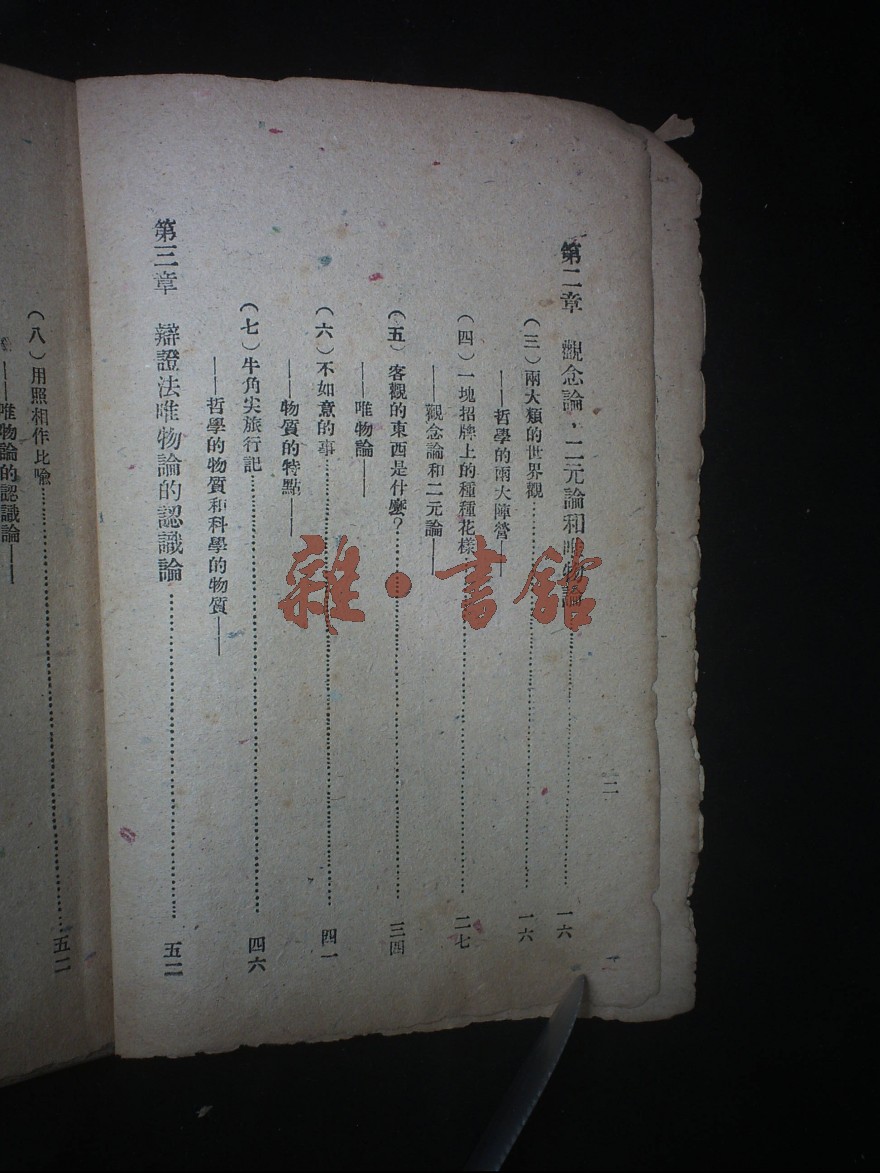 二
第二章　觀念論，二元論和唯物論…………一六
（三）兩大類的世界觀…………一六
——哲學的兩大陣營——
（四）一塊招牌上的種種花樣…………二七
——觀念論和二元論——
（五）客觀的東西是什麼？…………三四
——唯物論——
（六）不如意的事…………四一
——物質的特點——
（七）牛角尖旅行記…………四六
——哲學的物質和科學的物質——
第三章　辯證法唯物論的認識論…………五二
（八）用照相作比喻…………五二
——唯物論的認識論——
雜·書館